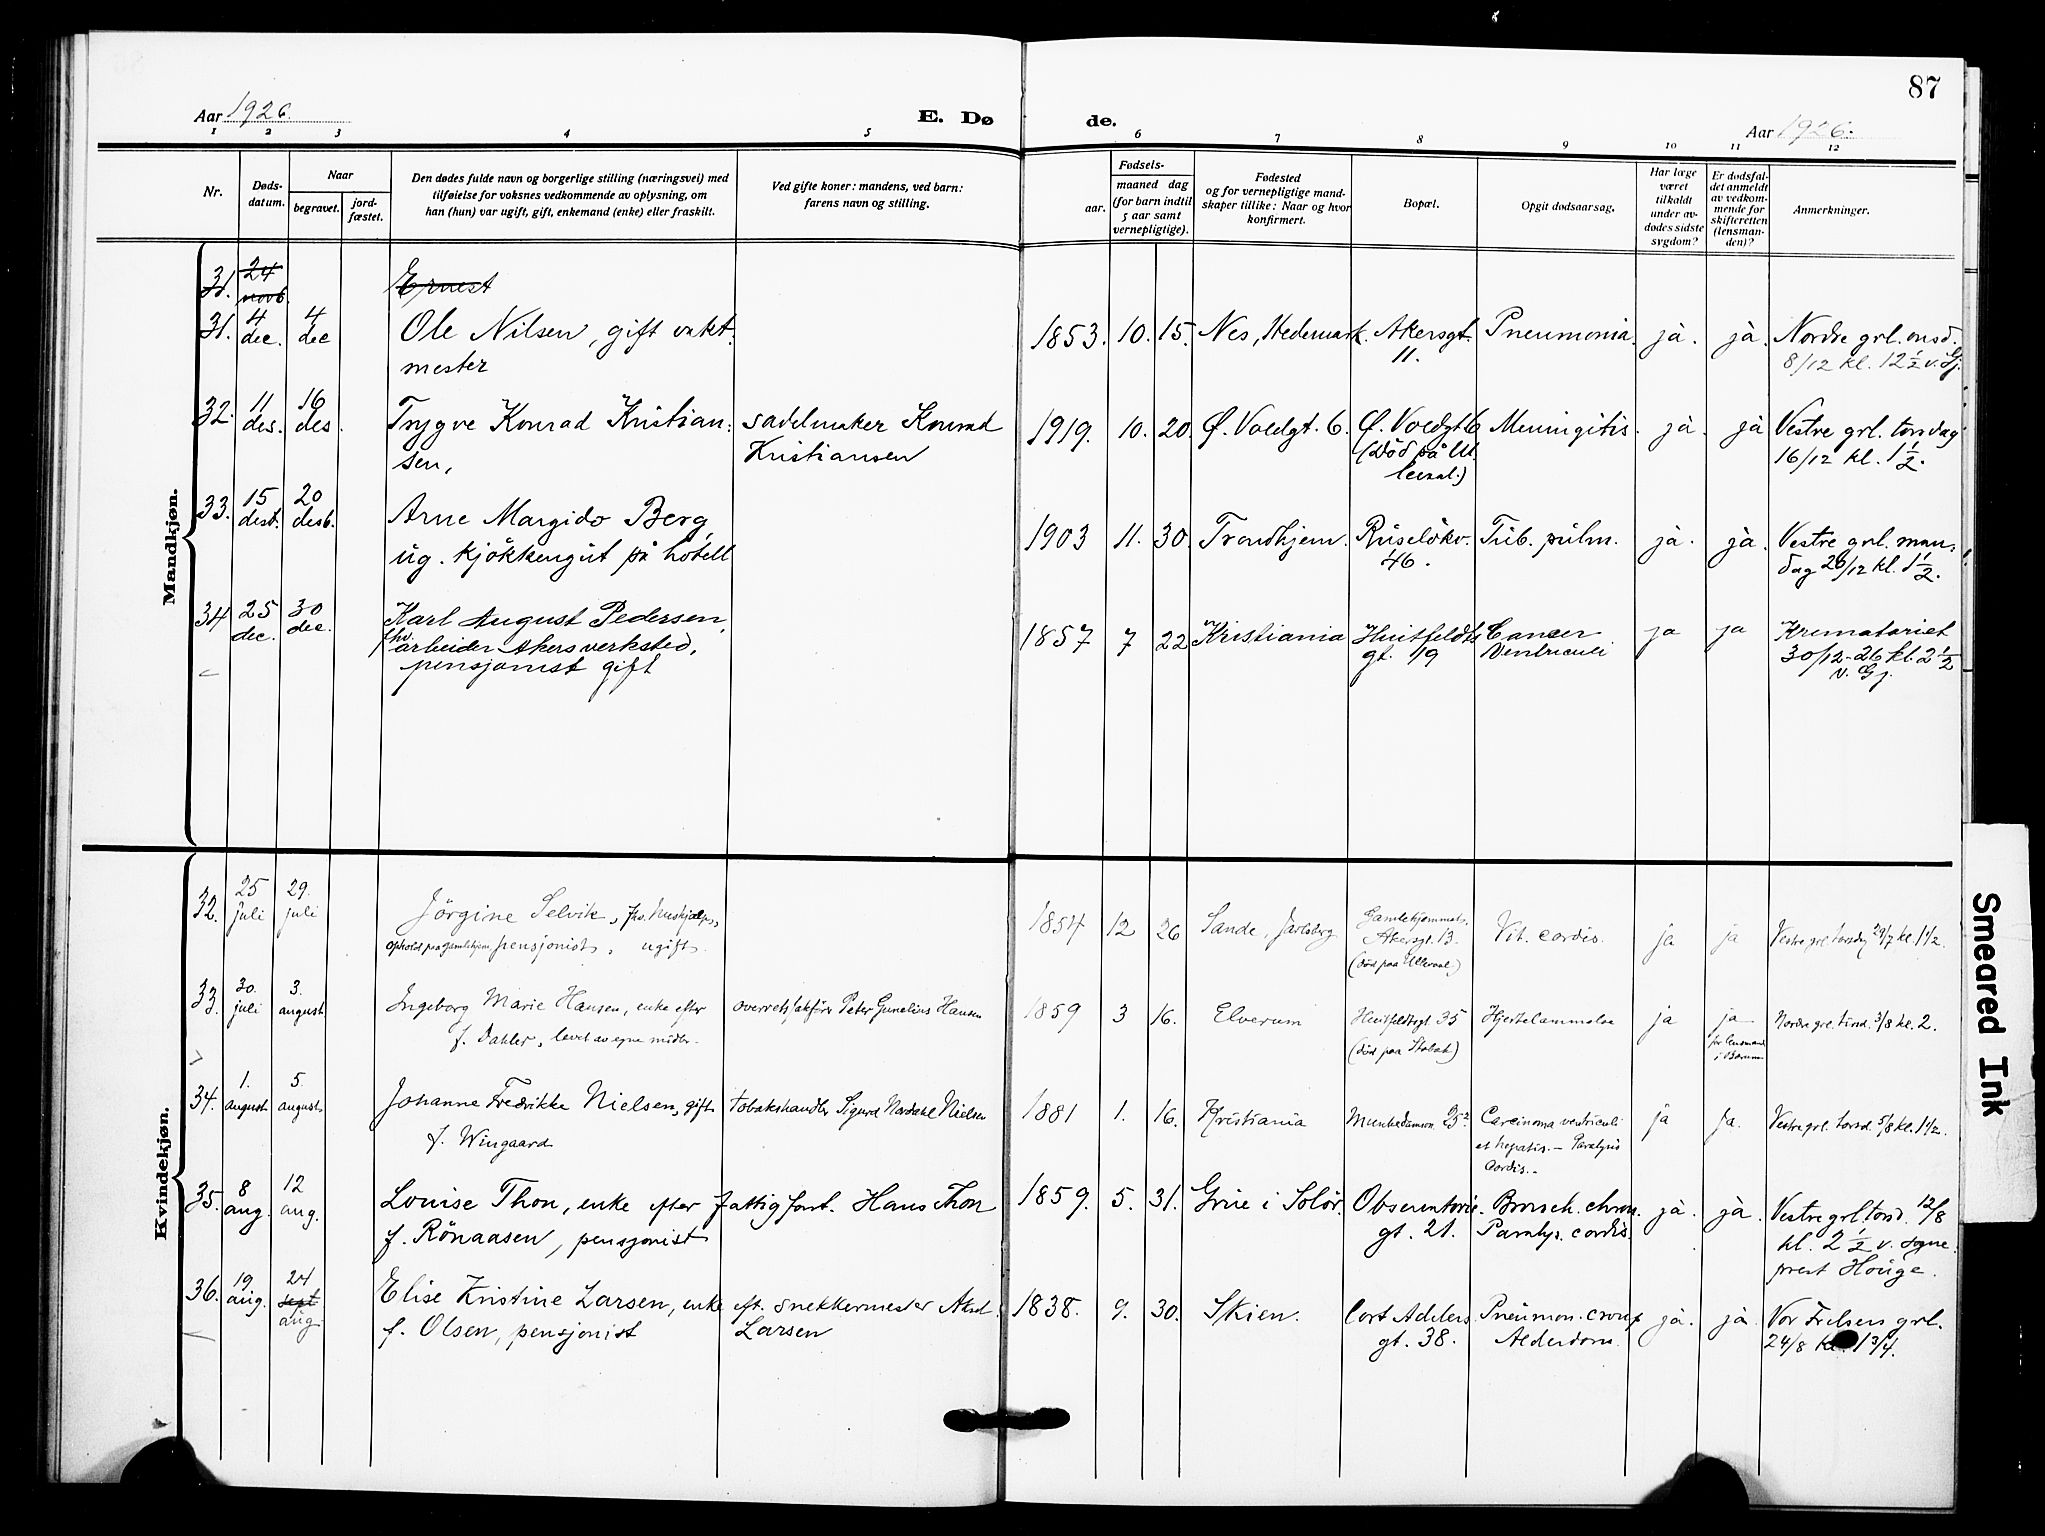 87
Aar 1926.
E. Døde.
Aar 1926.
1 2 3 4 5 6 7 8 9 10 11 12
Nr.
Døds-
datum.
Naar
begravet.
jord-
fæstet.
Den dødes fulde navn og borgerlige stilling (næringsvei) med
tilføielse for voksnes vedkommende av oplysning, om
han (hun) var ugift, gift, enkemand (enke) eller fraskilt.
Ved gifte koner: mandens, ved barn:
farens navn og stilling.
Fødsels-
aar.
maaned dag
(for barn indtil
5 aar samt
vernepligtige).
Fødested
og for vernepligtige mand-
skaper tillike: Naar og hvor
konfirmert.
Bopæl.
Opgit dødsaarsag.
Har læge
været
tilkaldt
under av-
dødes sidste
sygdom?
Er dødsfal-
det anmeldt
av vedkom-
mende for
skifteretten
(lensman-
den)?
Anmerkninger.
Mandkjøn.
31. 24 novb. Ernest
31. 4 dec. 4 dec Ole Nilsen, gift vakt-
mester
1853. 10. 15. Nes, Hedemark. Akersgt. 11. Pneumonia. ja. ja. Nordre grl. onsd.
8/12 kl. 12 1/2 v. Gj.
32. 11 des. 16 des. Trygve Konrad Kristian-
sen,
sadelmaker Konrad
Kristiansen
1919. 10. 20. Ø. Voldgt. 6. Ø. Voldgt 6
(død på Ul-
levaal.)
Meningitis. ja. ja Vestre grl. torsdag
16/12 kl. 1 1/2.
33. 15 desb. 20 desb. Arne Margido Berg,
ug. kjøkkengut på hotell
1903 11. 30. Trondhjem. Ruseløkv. 46. Tub. pulm. ja. ja. Vestre grl. man-
dag 20/12 kl. 1 1/2.
34 25 dec. 30 dec. Karl August Pedersen,
fhv. arbeider Akers verksted,
pensjonist gift
1857 7 22 Kristiania Huitfeldts
gt. 19
Cancer
Ventriculi
ja ja Krematoriet
30/12-26 kl. 2 1/2
v. Gj.
Kvindekjøn.
32. 25 juli 29. juli Jörgine Selvik, fhv. huskjælp,
ophold paa gamlehjem, pensjonist, ugift.
1854 12 26 Sande, Jarlsberg Gamlehjemmet.
Akersgt. 13.
(død paa Ullevaal.)
Vit. cordis. ja ja Vestre grl torsdag 29/7 kl. 1 1/2.
33. 30. juli 3. august Ingeborg Marie Hansen, enke efter
f. Dahler, levet av egne midler.
overretssakfører Peter Gunelius Hansen
1859 3 16. Elverum Huitfeldtsgt 35
(død paa Stabæk)
Hjertelammelse ja ja
for lensmand
i Bærum
Nordre grl. tirsd. 3/8 kl. 2.
34. 1. august 5. august Johanne Fredrikke Nielsen, gift
f. Wingaard
tobakshandler Sigurd Nordahl Nielsen
1881 1. 16. Kristiania Munkedamsv. 25² Carcinoma ventriculi
et hepatis. – Paralysis
Cordis.
ja ja. Vestre grl. torsd. 5/8 kl. 1 1/2.
35. 8 aug. 12 aug. Louise Thon, enke efter fattigforst. Hans Thon
f. Rönaasen, pensjonist
1859. 5. 31. Grue i Solør. Observatorie-
gt. 21.
Bronch. chron.
Paralys. cordis.
ja. ja. Vestre grl torsd. 12/8
kl. 2 1/2 v. sogne-
prest Houge.
36. 19 aug. 24 sept aug. Elise Kristine Larsen, enke eft. snekkermester
f. Olsen, pensjonist
Larsen
1838. 9. 30. Skien. Cort Adelers
gt. 38.
Pneumon. croup
Alderdom.
ja. ja. Vor Frelsers grl.
24/8 kl. 1 3/4.
Smeared Ink